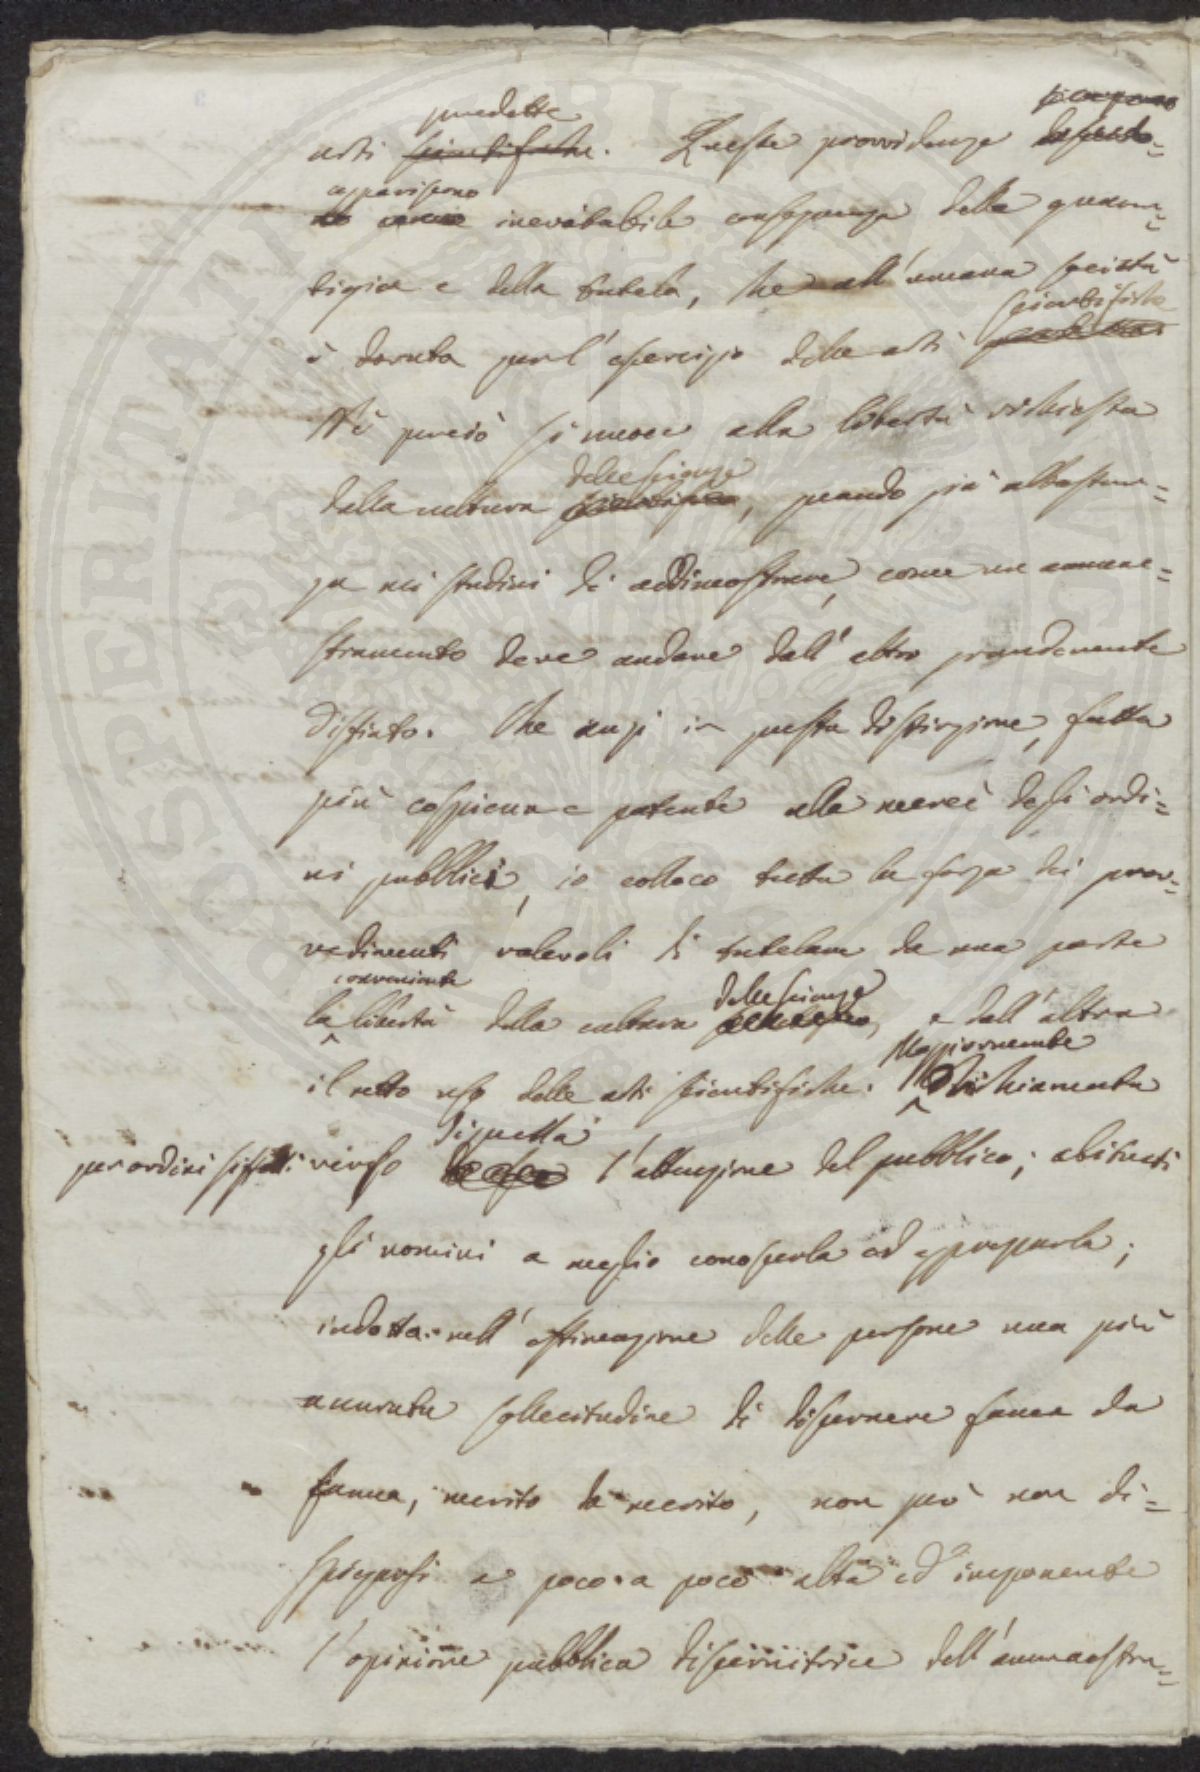 predette
arti scientifiche. Queste provvidenze
appariscono
inevitabile conseguenza della guaren=
tigia e della tutela, che all'umana società
scientifiche
è dovuta per l'esercizio delle arti
Nè perciò si nuoce alla libertà richiesta
delle scienze
dalla cultura scientifica, quando già abbastan=
za mi studiai di addimostrare, come un ammae=
stramento deve andare dall'altro grandemente
distinto. Che anzi in questa distinzione, fatta
più cospicua e potente alla mercè degli ordi=
ni pubblici, io colloco tutta la forza dei prov=
vedimenti valevoli di tutelare da una parte
conveniente
delle scienze
la libertà della cultura e dall'altra
Maggiormente
il retto uso delle arti scientifiche. Richiamata
di quella
per ordini sifatti verso l'attenzione del pubblico; abituati
gli uomini a meglio conoscerla ed apprezzarla;
indotta nell'estimazione delle persone una più
accurata sollecitudine di discernere fama da
fama, merito da merito, non può non di=
spiegarsi a poco a poco alta ed imponente
l'opinione pubblica discernitrice dell'ammaestra=